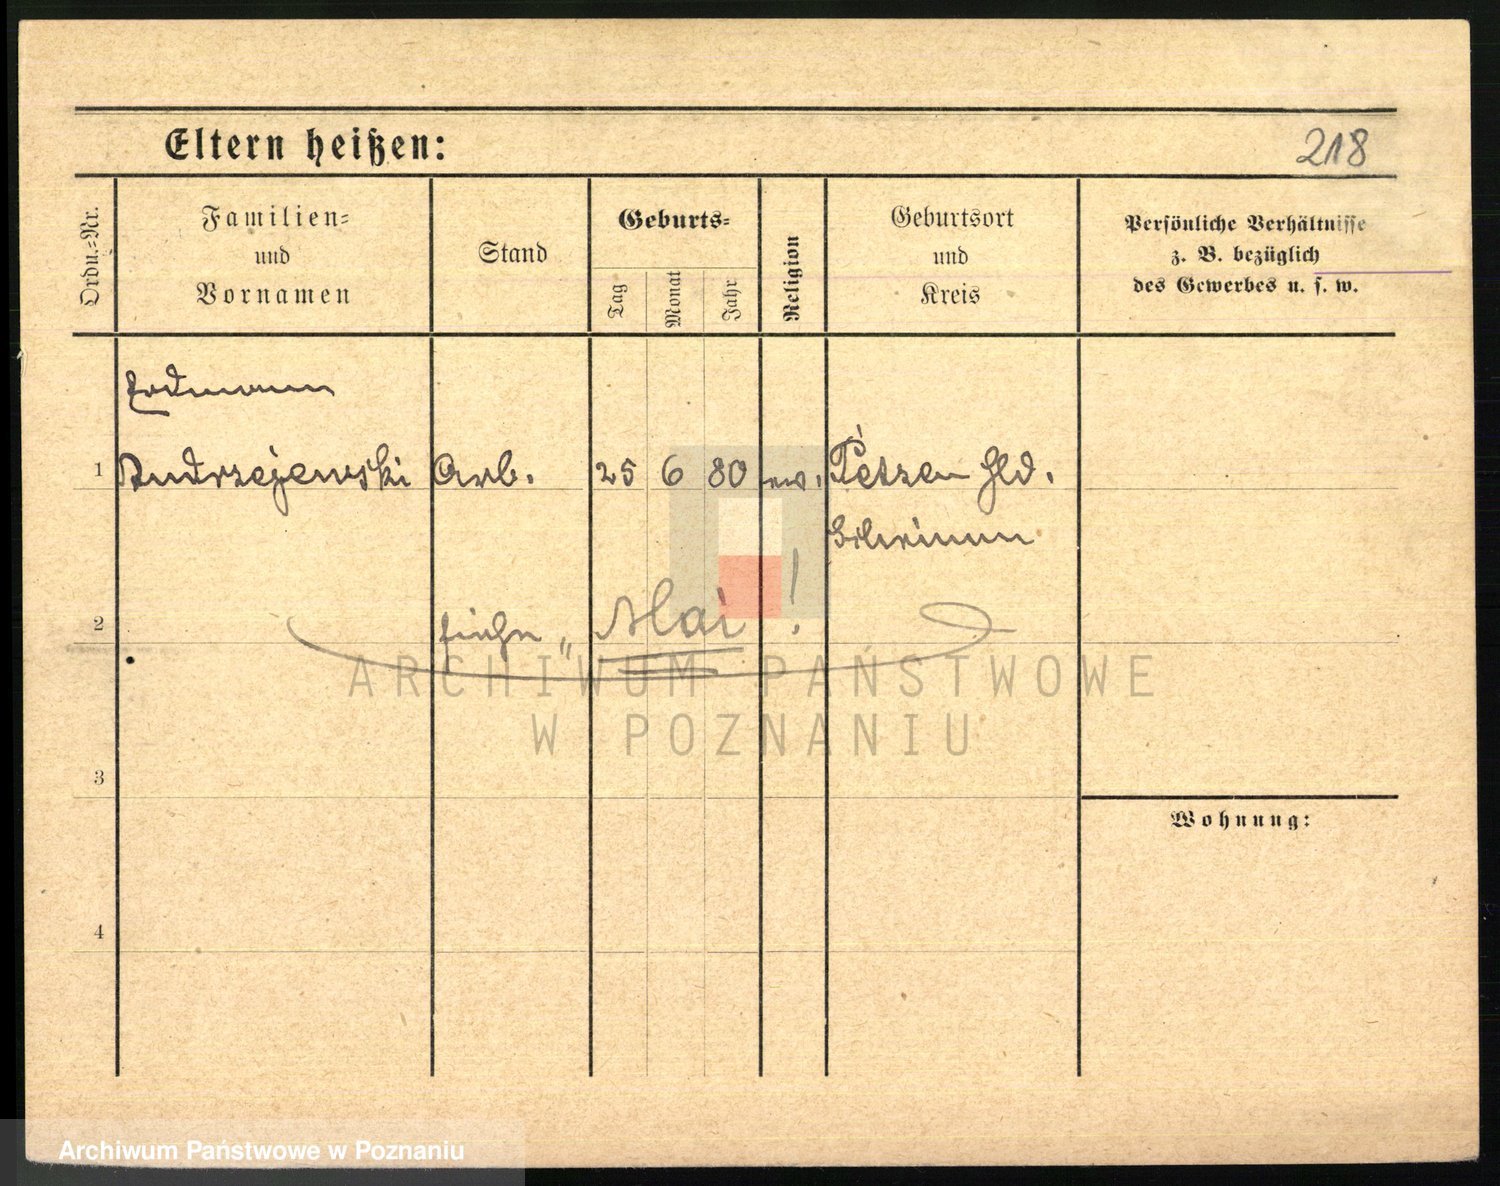 Eltern heißen:
218
Ordn.=Nr.
Familien=
und
Vornamen
Stand
Geburts=
Tag
Monat
Jahr
Religion
Geburtsort
und
Kreis
Persönliche Verhältnisse
z. B. bezüglich
des Gewerbes u. s. w.
Erdmann
1 Andrzejewski Arb. 25 6 80 ev. Petzen Hld.
Birnbaum
2 siehe „Mai!
3
Wohnung:
4
ARCHIWUM PAŃSTWOWE
W POZNANIU
Archiwum Państwowe w Poznaniu